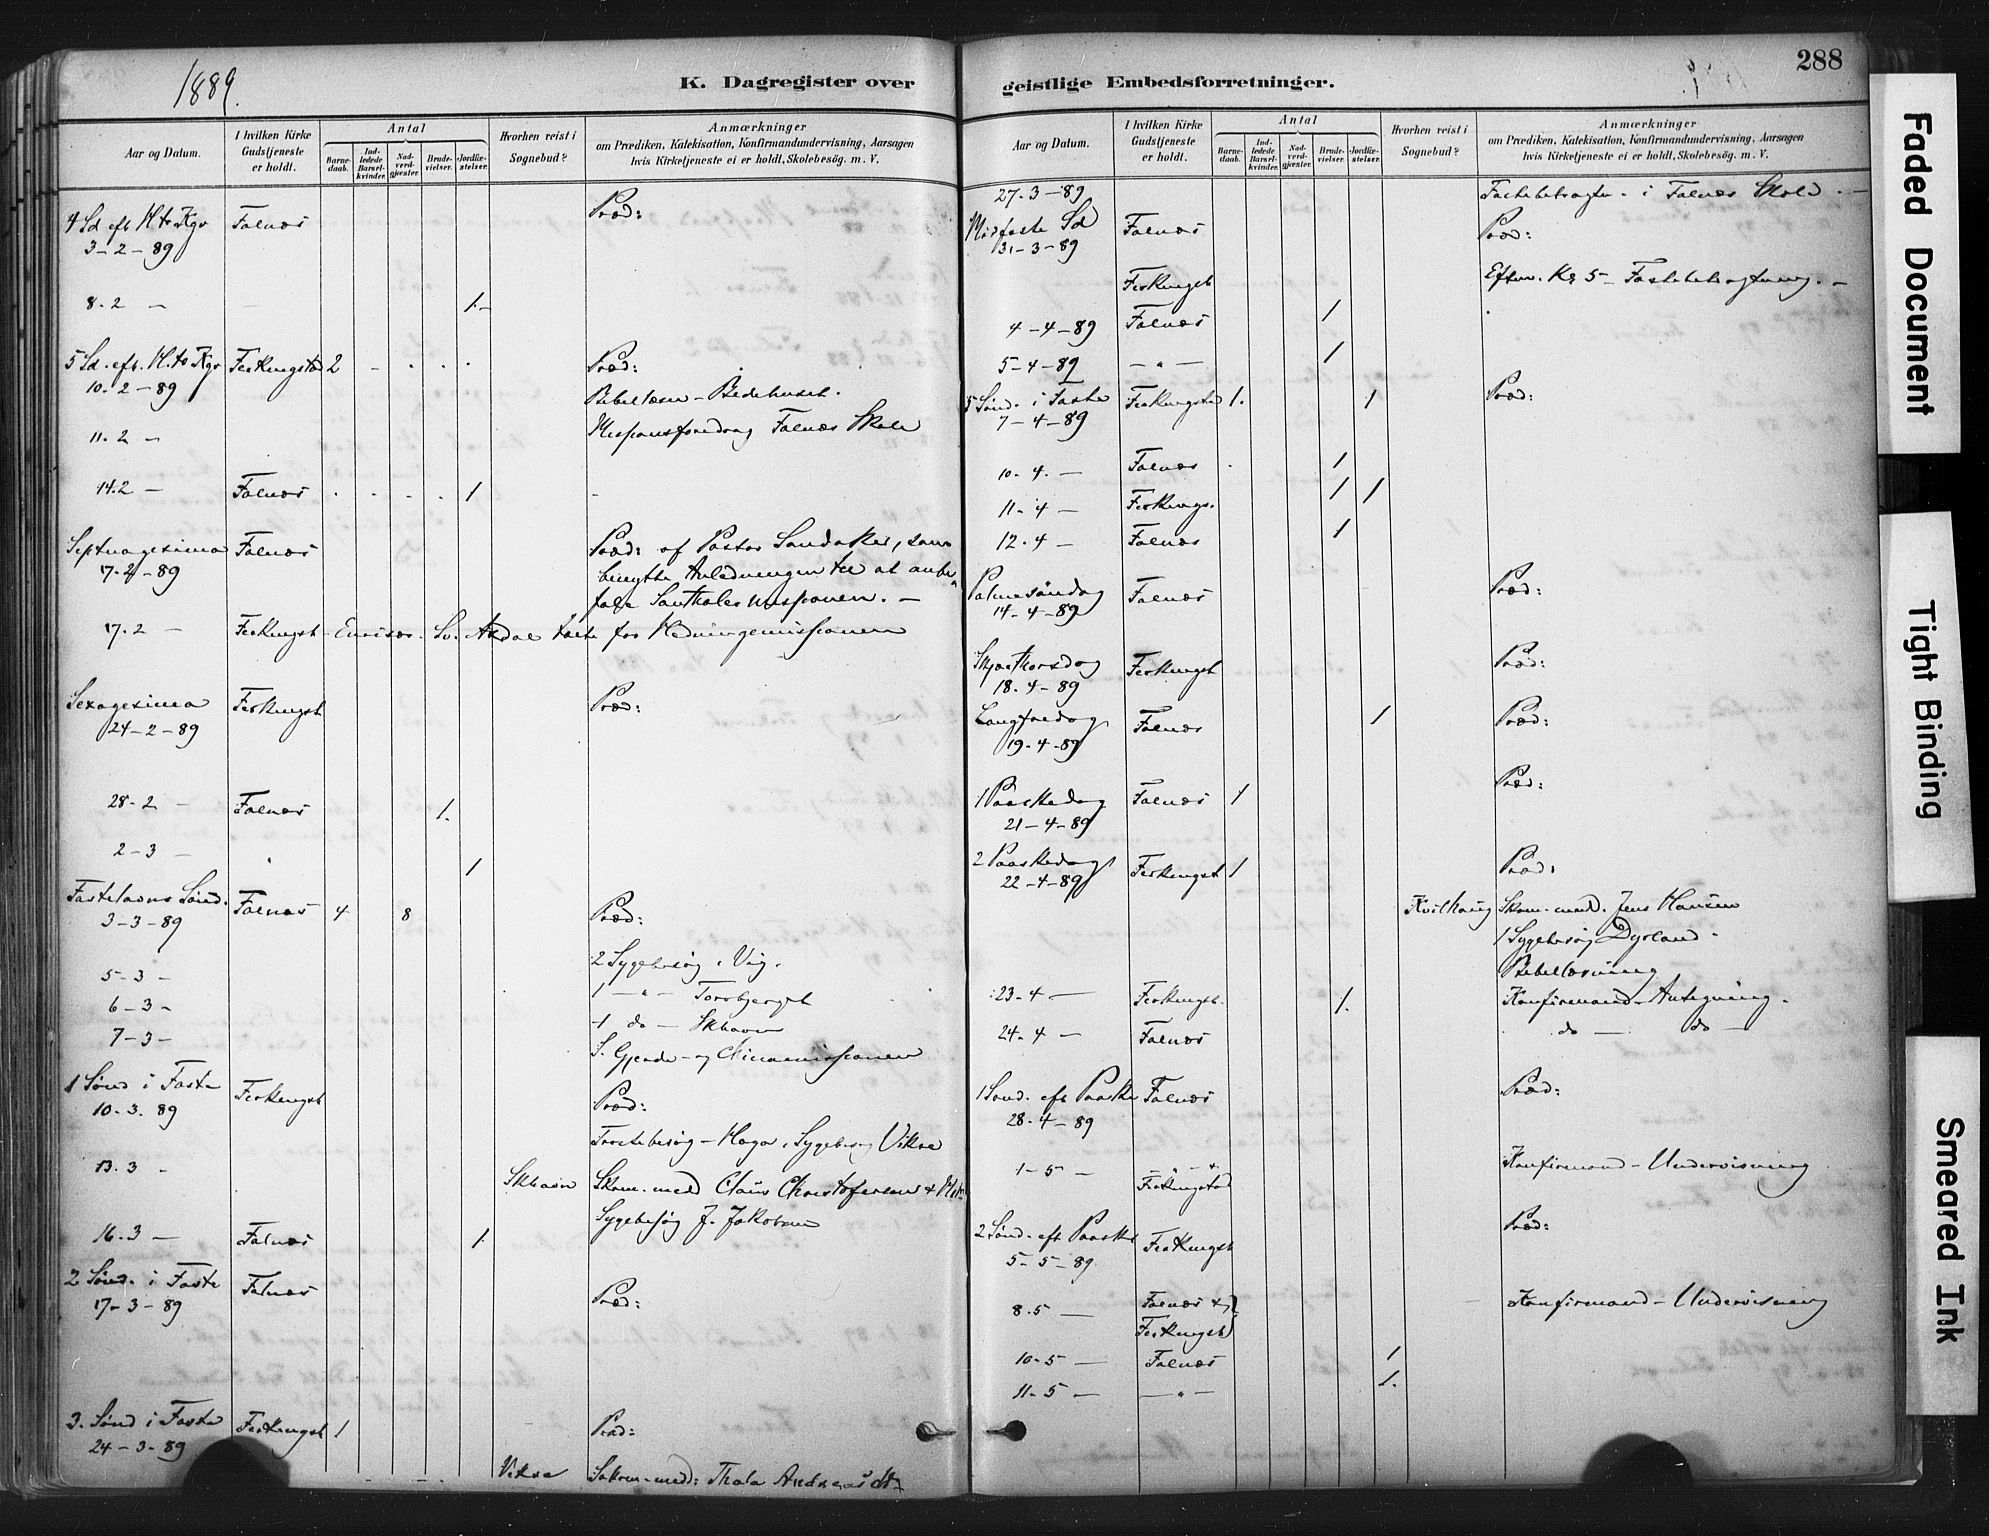 1889.
K. Dagregister over
Aar og Datum.
I hvilken Kirke Gudstjeneste er holdt.
Antal
Barnedaab.
Indledede Barselkvinder.
Nadverdgjester.
Brudevielser.
Jordfæstelser.
Hvorhen reist i Sognebud?
Anmærkninger
om Prædiken, Katekisation, Konfirmandundervisning, Aarsagen
hvis Kirketjeneste ei er holdt, Skolebesøg. m. V.
4 Sd eft H to Kgr Falnæs Præd:
3-2-89
8.2 - 1.-
5 Sd. eft. H. to Kgr Ferkingstad 2 - . . . Præd:
10.2-89 Bibellæsn - Bedehuset.
11.2 - Missionsforedrag Falnæs Skole
14.2 - Falnæs . . . . 1
Septuagesima Falnæs Præd: af Pastor Sandaker, som
17-2-89 benytte Anledningen til at anbe-
fale Santhalermissionen. -
17.2 - Ferkingst - Emissær. Sv. Aadne talte for Hedningemissionen
Sexagesima Ferkingst Præd:
24-2-89
28-2 - Falnæs 1.
2-3 - " 1
Fastelavns Sønd. Falnæs 4 8 Præd:
3-3-89
5-3 - 2 Sygebesøg i Vig.
6-3 - 1 - " -
7-3 - 1 do - Skhavn
S. Gjerde - og Kinamissionen
1 Sønd i Faste Ferkingst Præd:
10.3.89
- Haga, Sygebesøg Vikre
13.3 - Skhavn Skom. med Claus Christofersen +
Sygebesøg J. Jakobsen
16.3 - Falnæs 1
2 Sønd. i Faste Falnæs Præd:
17-3-89
3. Sønd i Faste Ferkingst 1 Præd:
24-3-89
Vikre med: Thala Andreas
288
geistlige Embedsforretninger.
Aar og Datum.
I hvilken Kirke Gudstjeneste er holdt.
Antal
Barnedaab.
Indledede Barselkvinder.
Nadverdgjester.
Brudevielser.
Jordfæstelser.
Hvorhen reist i Sognebud?
Anmærkninger
om Prædiken, Katekisation, Konfirmandundervisning, Aarsagen
hvis Kirketjeneste ei er holdt, Skolebesøg. m. V.
27-3-89 Fastebetragtn. i Falnæs Skole. -
Midfaste Sd Falnæs Præd:
31-3-89
Ferkingst Efterm. Kl 5 - Fastebetragtning. -
4-4-89 Falnæs 1
5-4-89 - " - 1
5 Sønd. i Faste Ferkingstad 1. 1 Præd:
7-4-89
10-4. - Falnæs 1
11-4 - Ferkings. 1 1
12.4 - Falnæs 1
Palmesøndag Falnæs Præd:
14-4-89
Skjærthorsdag Ferkingst Præd:
18.4-89
Langfredag Falnæs 1 Præd:
19-4-89
1 Paaskedag Falnæs 1 Præd:
21-4-89
2 Paaskedag Ferkingst 1 Præd:
22-4-89
Kvilhaug Skom. med. Jens Hansen
1 Sygebesøg Dysland -
Bibellæsning
23-4 - Ferkingst. 1. Konfirmand-Antegning.
24-4 - Falnæs do - do -
1 Sønd. eft Paaske Falnæs Præd:
28-4-89
1-5 - - " - + Ferkingstad Konfirmand-Undervisning
2 Sønd. eft Paaske Ferkingst Præd:
5-5-89
8.5 - Falnæs + Ferkingst Konfirmand-Undervisning
10-5 - Falnæs 1
11-5 - - " - 1.
Faded Document
Tight Binding
Smeared Ink